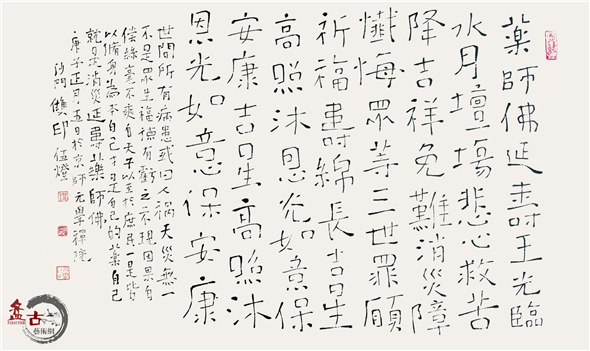 藥師佛延壽王光臨
水月壇場悲心救苦
降吉祥免難消災障
懺悔眾等三世罪願
祈福壽綿長吉星
高照沐恩光如意保
安康吉星高照沐
恩光如意保安康
世間所有病患或曰人禍天災無一
不是眾生福德有虧之不現因果自
償絲毫不爽自天子以至於庶民一是皆
以脩身為本自己才是自己的藥自己
就是消災延壽藥師佛
庚子正月五日於京師元學禪院
沙門雙印伍燈
盘古
藝術網